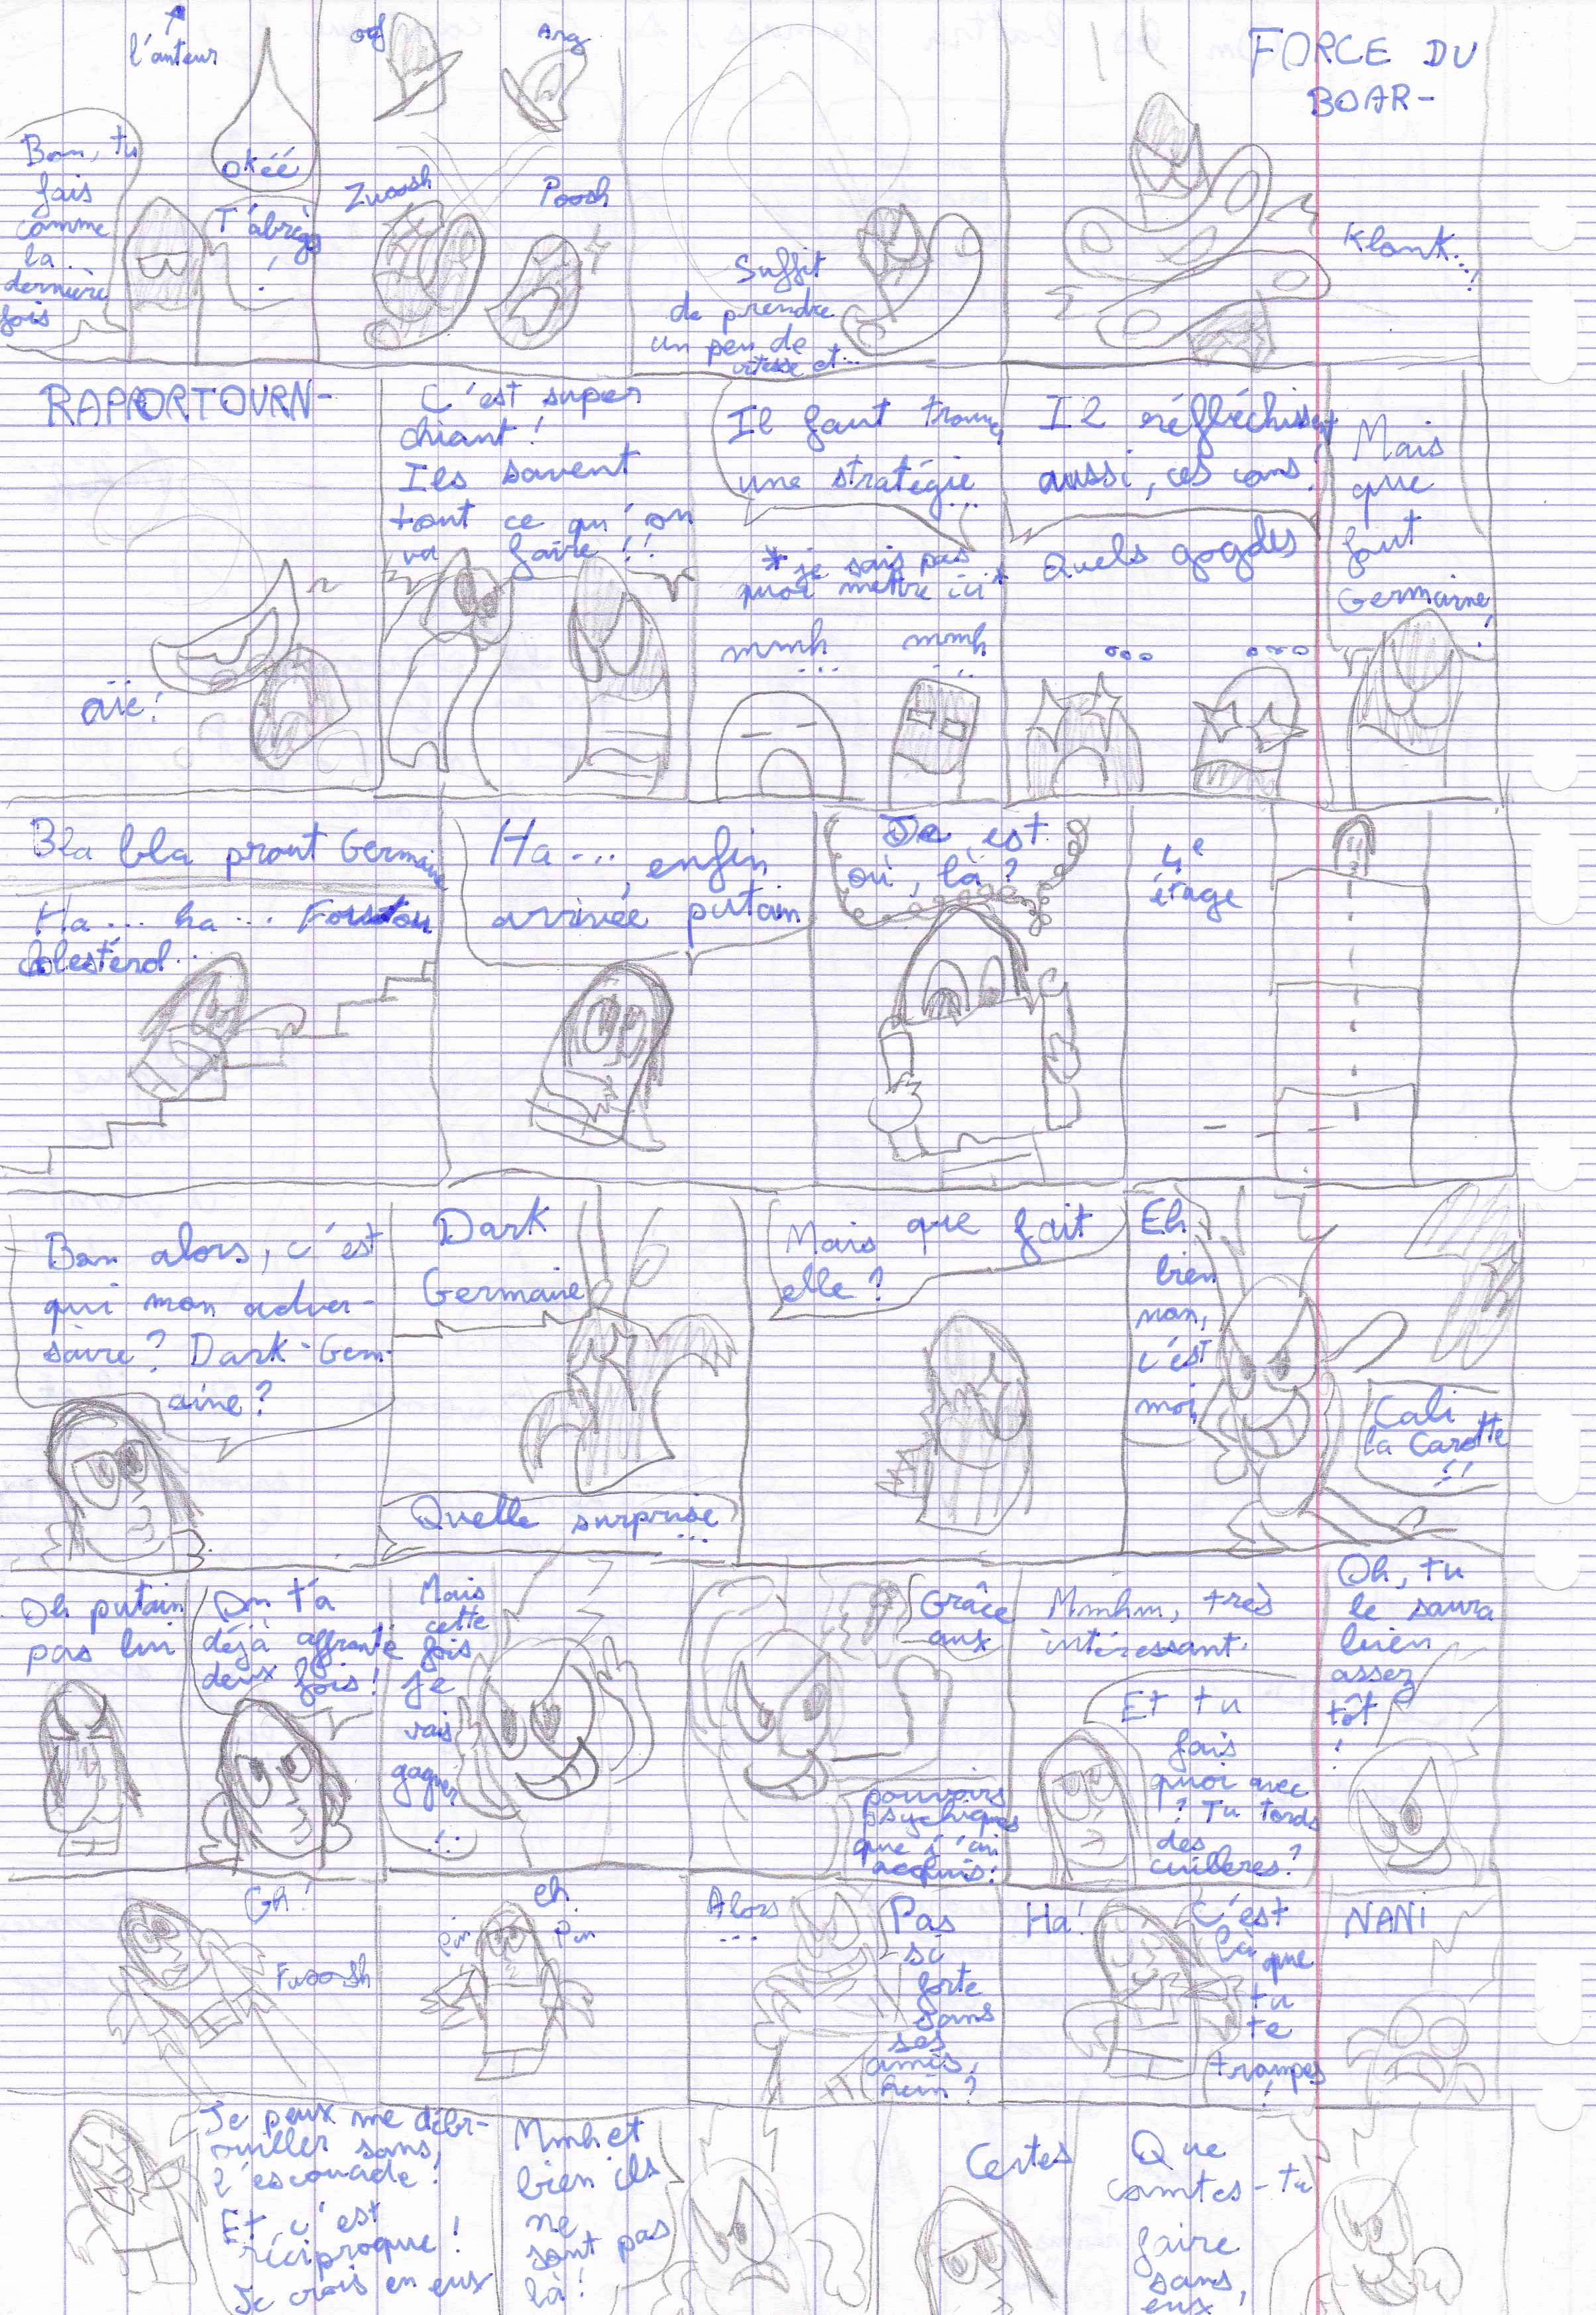 l'auteur
Bon, tu
fais
comme
la
dernière
fois
okéé
T'abrèges
!
oof
Arg
Zwoosh
Poosh
Suffit
de prendre
un peu de
vitesse et...
FORCE DU
BOAR-
Klonk...!
RAPPORTOURN-
aïe!
C'est super
chiant!
Ils savent
tout ce qu'on
va faire!!
Il faut trouver
une stratégie
...
*je sais pas
quoi mettre ici*
mmh
...
mmh
...
Il réfléchissent
aussi, ces cons!
Quels gogoles
...
...
Mais
que
fout
Germaine
!
Bla bla prout Germaine
Ha... ha...
colestérol...
Ha..., enfin
arrivée putain
Je est
où, là?
4e
étage
Bon alors, c'est
qui mon adver-
saire? Dark-Germ-
aine?
Dark
Germaine
Quelle surprise
...
Mais que fait
elle?
Eh
bien
non,
c'est
moi,
Cali
la Carotte
!!
Oh putain
pas lui
On t'a
déjà affronté
deux fois!
Mais
cette
fois
je
vais
gagner
!..
Grâce
aux
pouvoirs
psychiques
que j'ai
acquis!
Mmhm, très
intéressant.
Et tu
fais
quoi avec
? Tu tords
des
cuillères?
Oh, tu
le saura
bien
assez
tôt
!
GR!
Fwoosh
eh
Pin
Pin
Alors
...
Pas
si
forte
sans
ses
amis,
hein?
Ha!
C'est
là que
tu
te
trompes
!
NANI
Je peux me débr-
ouiller sans
l'escouade!
Et c'est
réciproque!
Je crois en eux
Mmh et
bien ils
ne
sont pas
là!
Certes
Que
comtes-tu
faire
sans,
eux